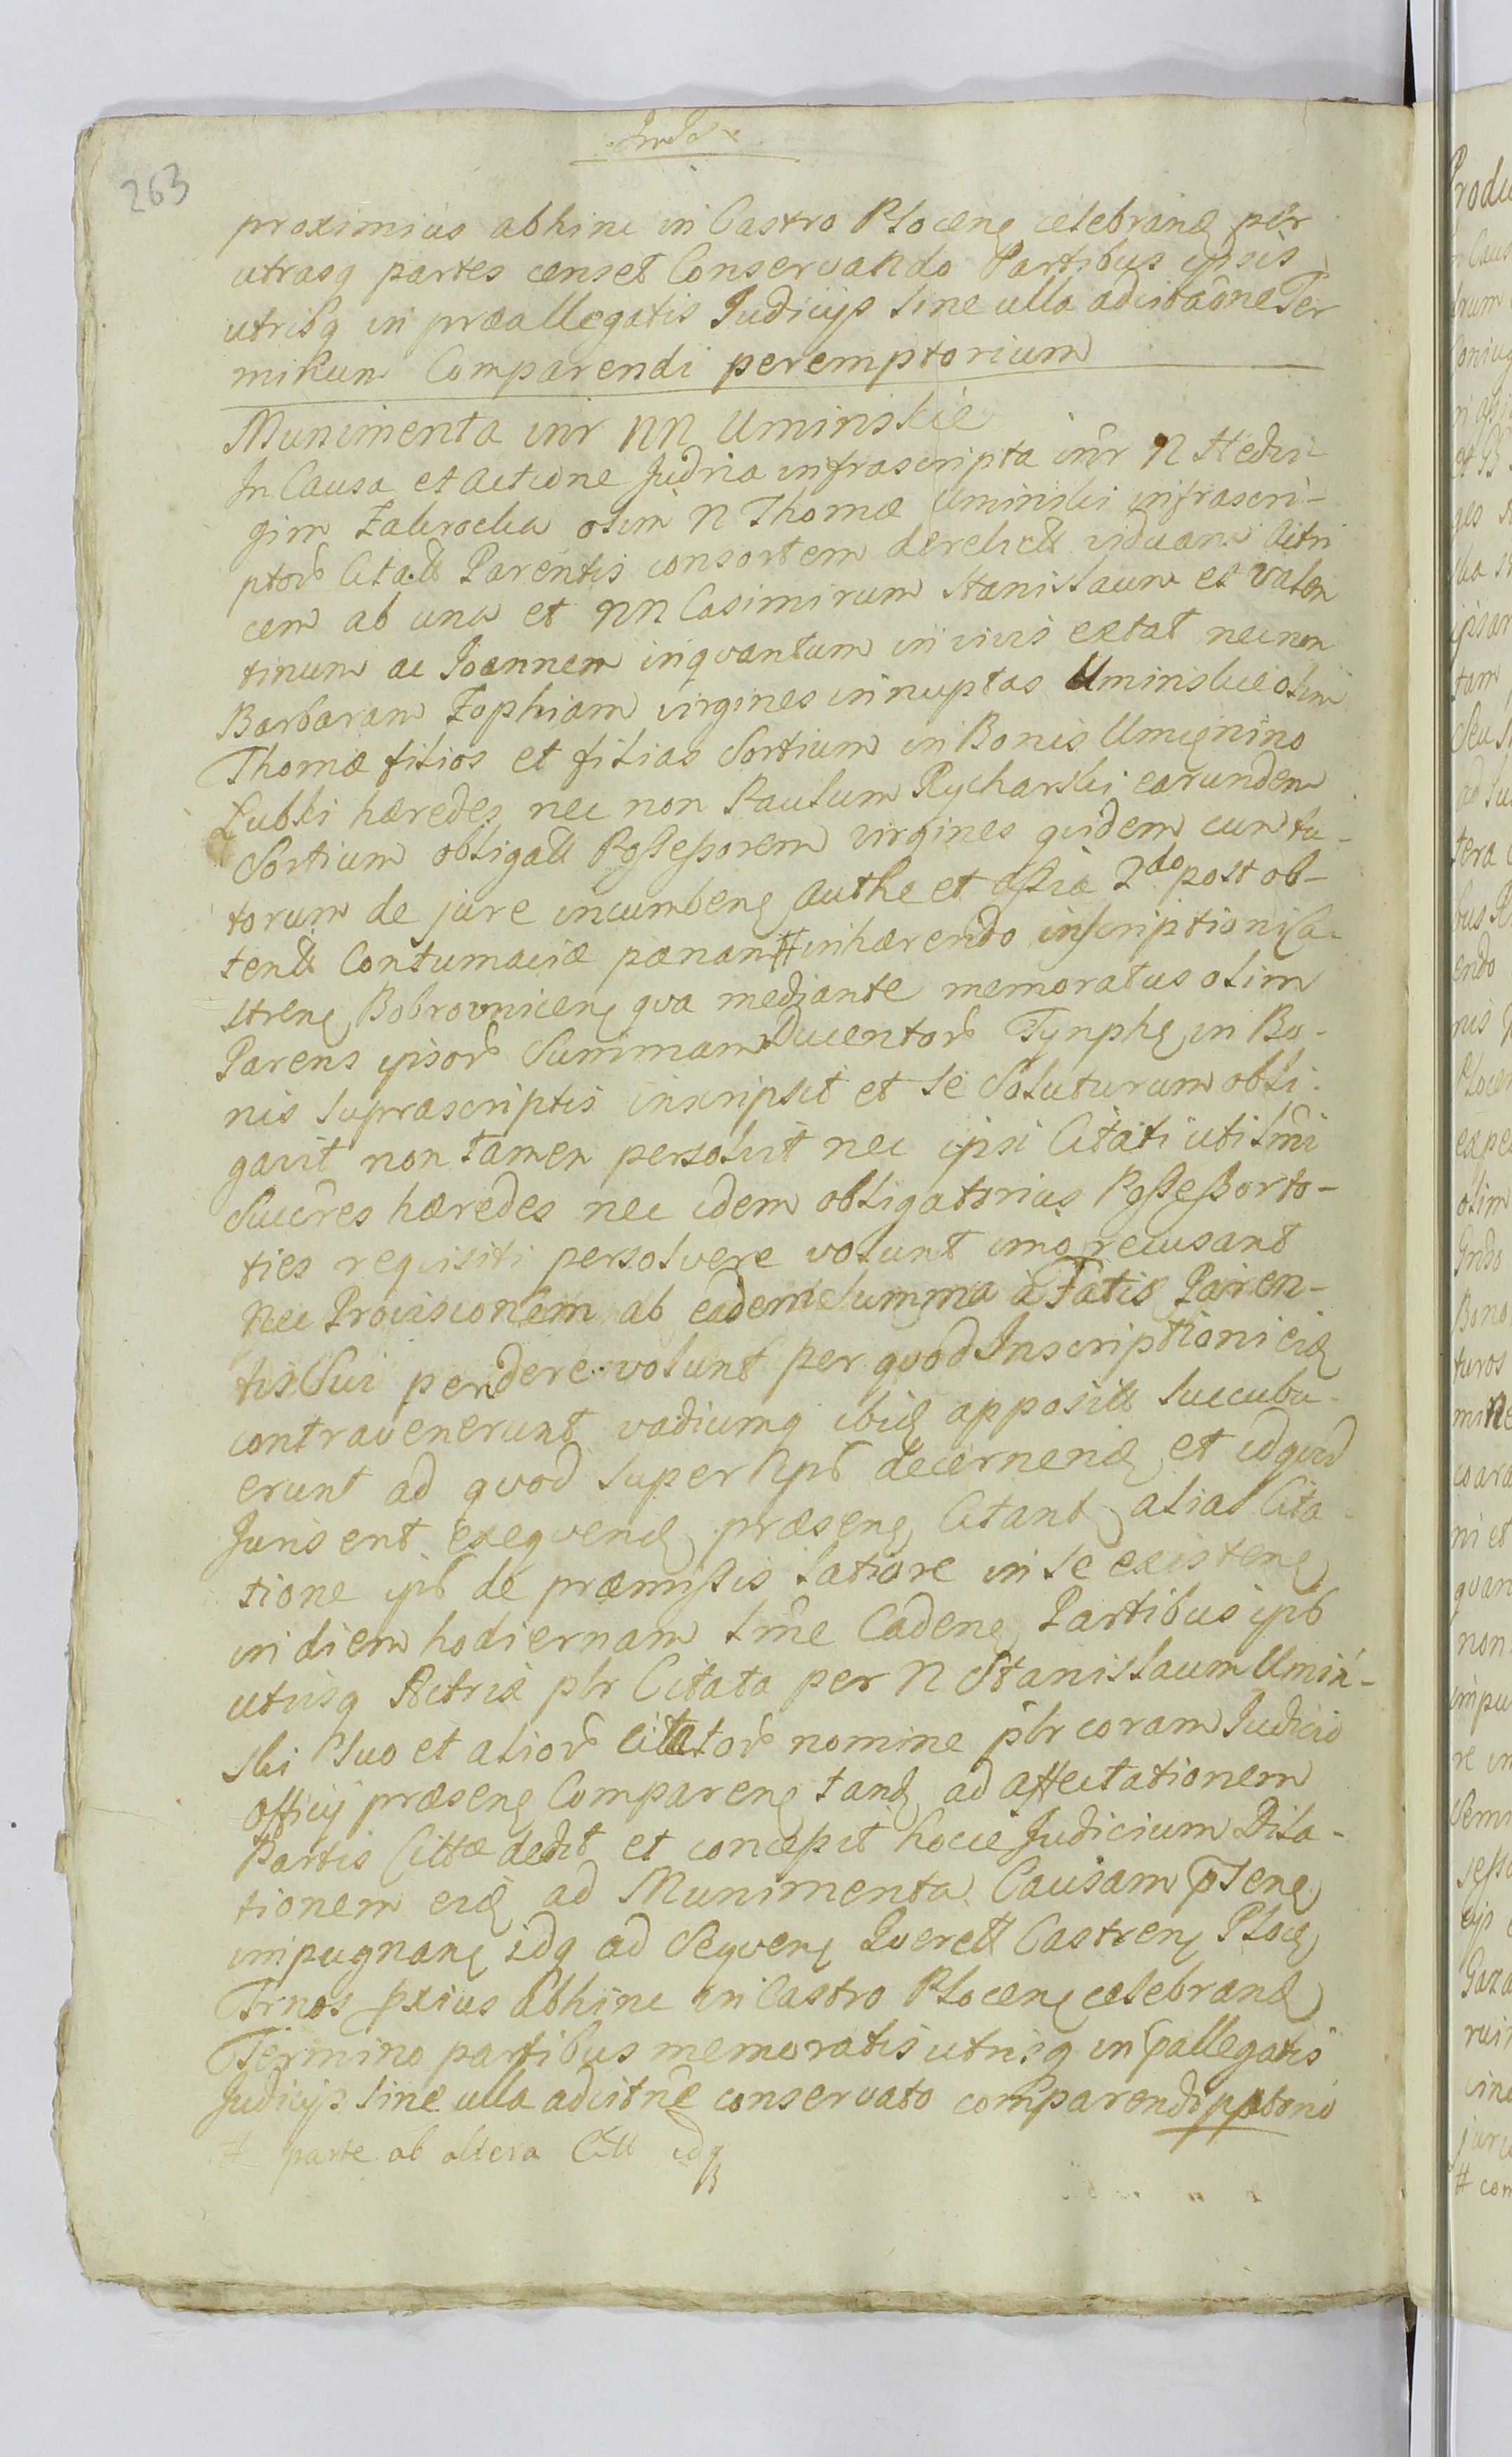 263
proximius abhinc in Castro Plocen celebrand per
utrasq partes censet Conservando Partibus ipsis
utrisq in præallegatis Judicijs sine ulla adcitaõne Ter
minum Comparendi peremptorium
Munimenta inr NN Uminskie
In Causa et actione Judria infrascripta inr N Hedvi
gim Zakrocka olim N Thomæ Uminski infrascri-
ptor Citatt Parentis consortem derelictt viduam Actri
cem ab una et NN Casimirum Stanislaum et Valen
tinum ac Joannem inqvantum in vivis extat nec non
Barbaram Zophiam virgines innuptas Uminskie olim
Thomæ filios et filias Sortium in Bonis Umignino
Lubki hæredes nec non Paulum Rycharski earundem
Sortium obligatt Possessorem virgines qvidem cum tu-
torum de jure incumben Authe et Assia 2do post ob-
tentt Contumaciæ pænam # inhærendo inscriptioni Ca-
stren Bobrovnicen qva mediante memoratus olim
Parens ipsor Summam Ducentor Tynph in Bo-
nis suprascriptis inscripsit et se Soluturum obli-
gavit non tamen persolvit nec ipsi Citati uti lmi
Succres hæredes nec idem obligatorius Possessor to-
ties reqvisiti persolvere volunt imo recusant
Nec Provisionem ab eadem summa a Fatis Paren-
tis Sui pendere volunt per qvod Inscriptioni eid
contravenerunt vadiumq ibid appositt succubu-
erunt ad qvod super ipś decernend et idqvid
Juris erit exeqvend præsen Citant alias Cita-
tione ipś de præmissis latiore in se existen
in diem hodiernam lme Caden Partibus ipś
utrisq Actrice plr Citata per N Stanislaum Umiń-
ski suo et alior citator nomine plr coram Judicio
officij præsen Comparen tand ad affectationem
Partis Cittæ dedit et concepit hocce Judicium Dila-
tionem eid ad Munimenta Causam p̄sen
impugnan idq ad Seqven Qverell Castren Ploc
Trnos pxius Abhinc in Castro Plocen celebrand
Termino partibus memoratis utrisq in p̄allegatis
Judicijs sine ulla adcitne conservato comparendi pptorio
# parte ab altera Citt idq